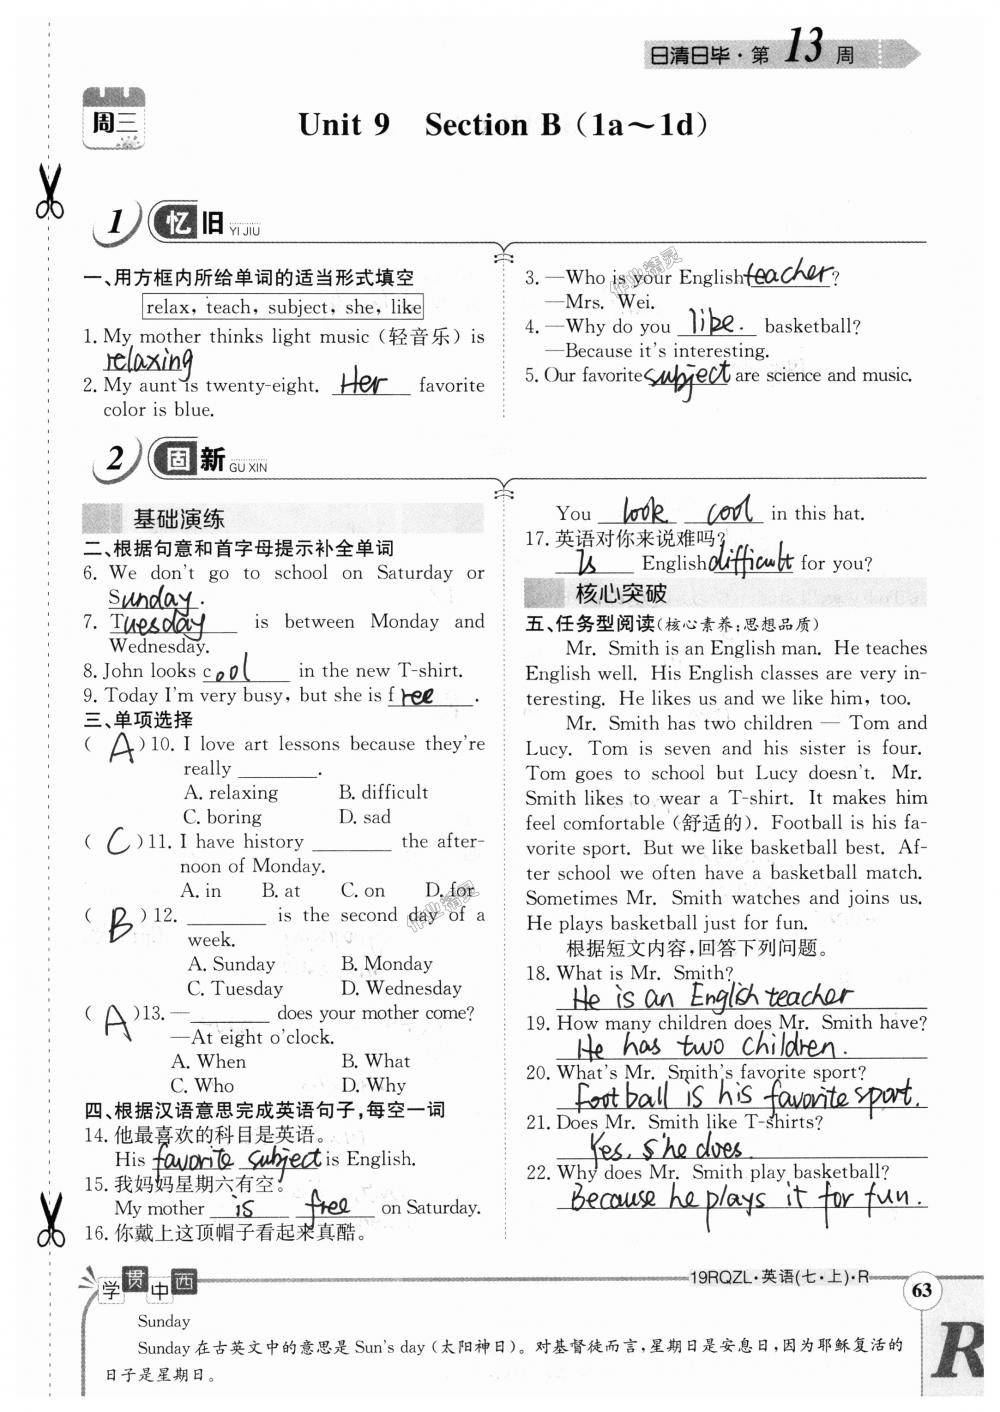 日清日毕·第13周
周三
Unit 9 Section B (1a～1d)
1 忆旧 YI JIU
一、用方框内所给单词的适当形式填空
relax, teach, subject, she, like
1. My mother thinks light music (轻音乐) is
relaxing
2. My aunt is twenty-eight. Her favorite
color is blue.
3. —Who is your English teacher?
—Mrs. Wei.
4. —Why do you like. basketball?
—Because it's interesting.
5. Our favorite subject are science and music.
作业精灵
2 固新 GU XIN
基础演练
二、根据句意和首字母提示补全单词
6. We don't go to school on Saturday or
Sunday.
7. Tuesday is between Monday and
Wednesday.
8. John looks cool in the new T-shirt.
9. Today I'm very busy, but she is free.
三、单项选择
( A )10. I love art lessons because they're
really ________.
A. relaxing B. difficult
C. boring D. sad
( C )11. I have history ________ the after-
noon of Monday.
A. in B. at C. on D. for
( B )12. ________ is the second day of a
week.
A. Sunday B. Monday
C. Tuesday D. Wednesday
作业精灵
( A )13. —________ does your mother come?
—At eight o'clock.
A. When B. What
C. Who D. Why
四、根据汉语意思完成英语句子,每空一词
14. 他最喜欢的科目是英语。
His favorite subject is English.
15. 我妈妈星期六有空。
My mother is free on Saturday.
16. 你戴上这顶帽子看起来真酷。
You look cool in this hat.
17. 英语对你来说难吗?
Is English difficult for you?
核心突破
五、任务型阅读(核心素养:思想品质)
Mr. Smith is an English man. He teaches
English well. His English classes are very in-
teresting. He likes us and we like him, too.
Mr. Smith has two children — Tom and
Lucy. Tom is seven and his sister is four.
Tom goes to school but Lucy doesn't. Mr.
Smith likes to wear a T-shirt. It makes him
feel comfortable (舒适的). Football is his fa-
vorite sport. But we like basketball best. Af-
ter school we often have a basketball match.
Sometimes Mr. Smith watches and joins us.
He plays basketball just for fun.
根据短文内容,回答下列问题。
18. What is Mr. Smith?
He is an English teacher
19. How many children does Mr. Smith have?
He has two children.
20. What's Mr. Smith's favorite sport?
Football is his favorite sport.
21. Does Mr. Smith like T-shirts?
Yes, s'he does.
22. Why does Mr. Smith play basketball?
Because he plays it for fun.
学贯中西
19RQZL·英语(七·上)·R
63
Sunday
Sunday 在古英文中的意思是 Sun's day (太阳神日)。对基督徒而言,星期日是安息日,因为耶稣复活的
日子是星期日。
R